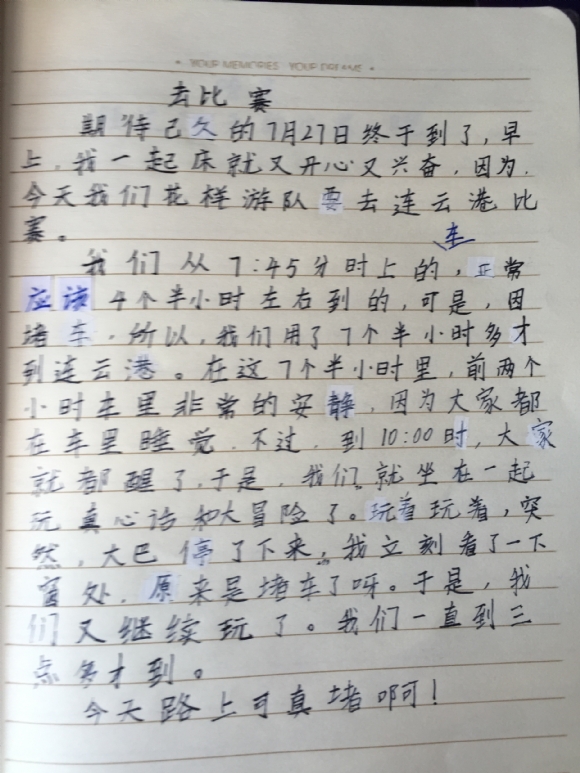 • YOUR MEMORIES YOUR DREAMS •
去比赛
期待已久的7月27日终于到了,早
上,我一起床就又开心又兴奋,因为,
今天我们花样游队要去连云港比
赛。
车
我们从7:45分时上的,正常
应该4个半小时左右到的,可是,因
堵车,所以,我们用了7个半小时多才
到连云港。在这7个半小时里,前两个
小时车里非常的安静,因为大家都
在车里睡觉,不过,到10:00时,大家
就都醒了,于是,我们就坐在一起
玩真心话和大冒险了。玩着玩着,突
然,大巴停了下来,我立刻看了一下
窗处,原来是堵车了呀。于是,我
们又继续玩了。我们一直到三
点多才到。
今天路上可真堵啊!